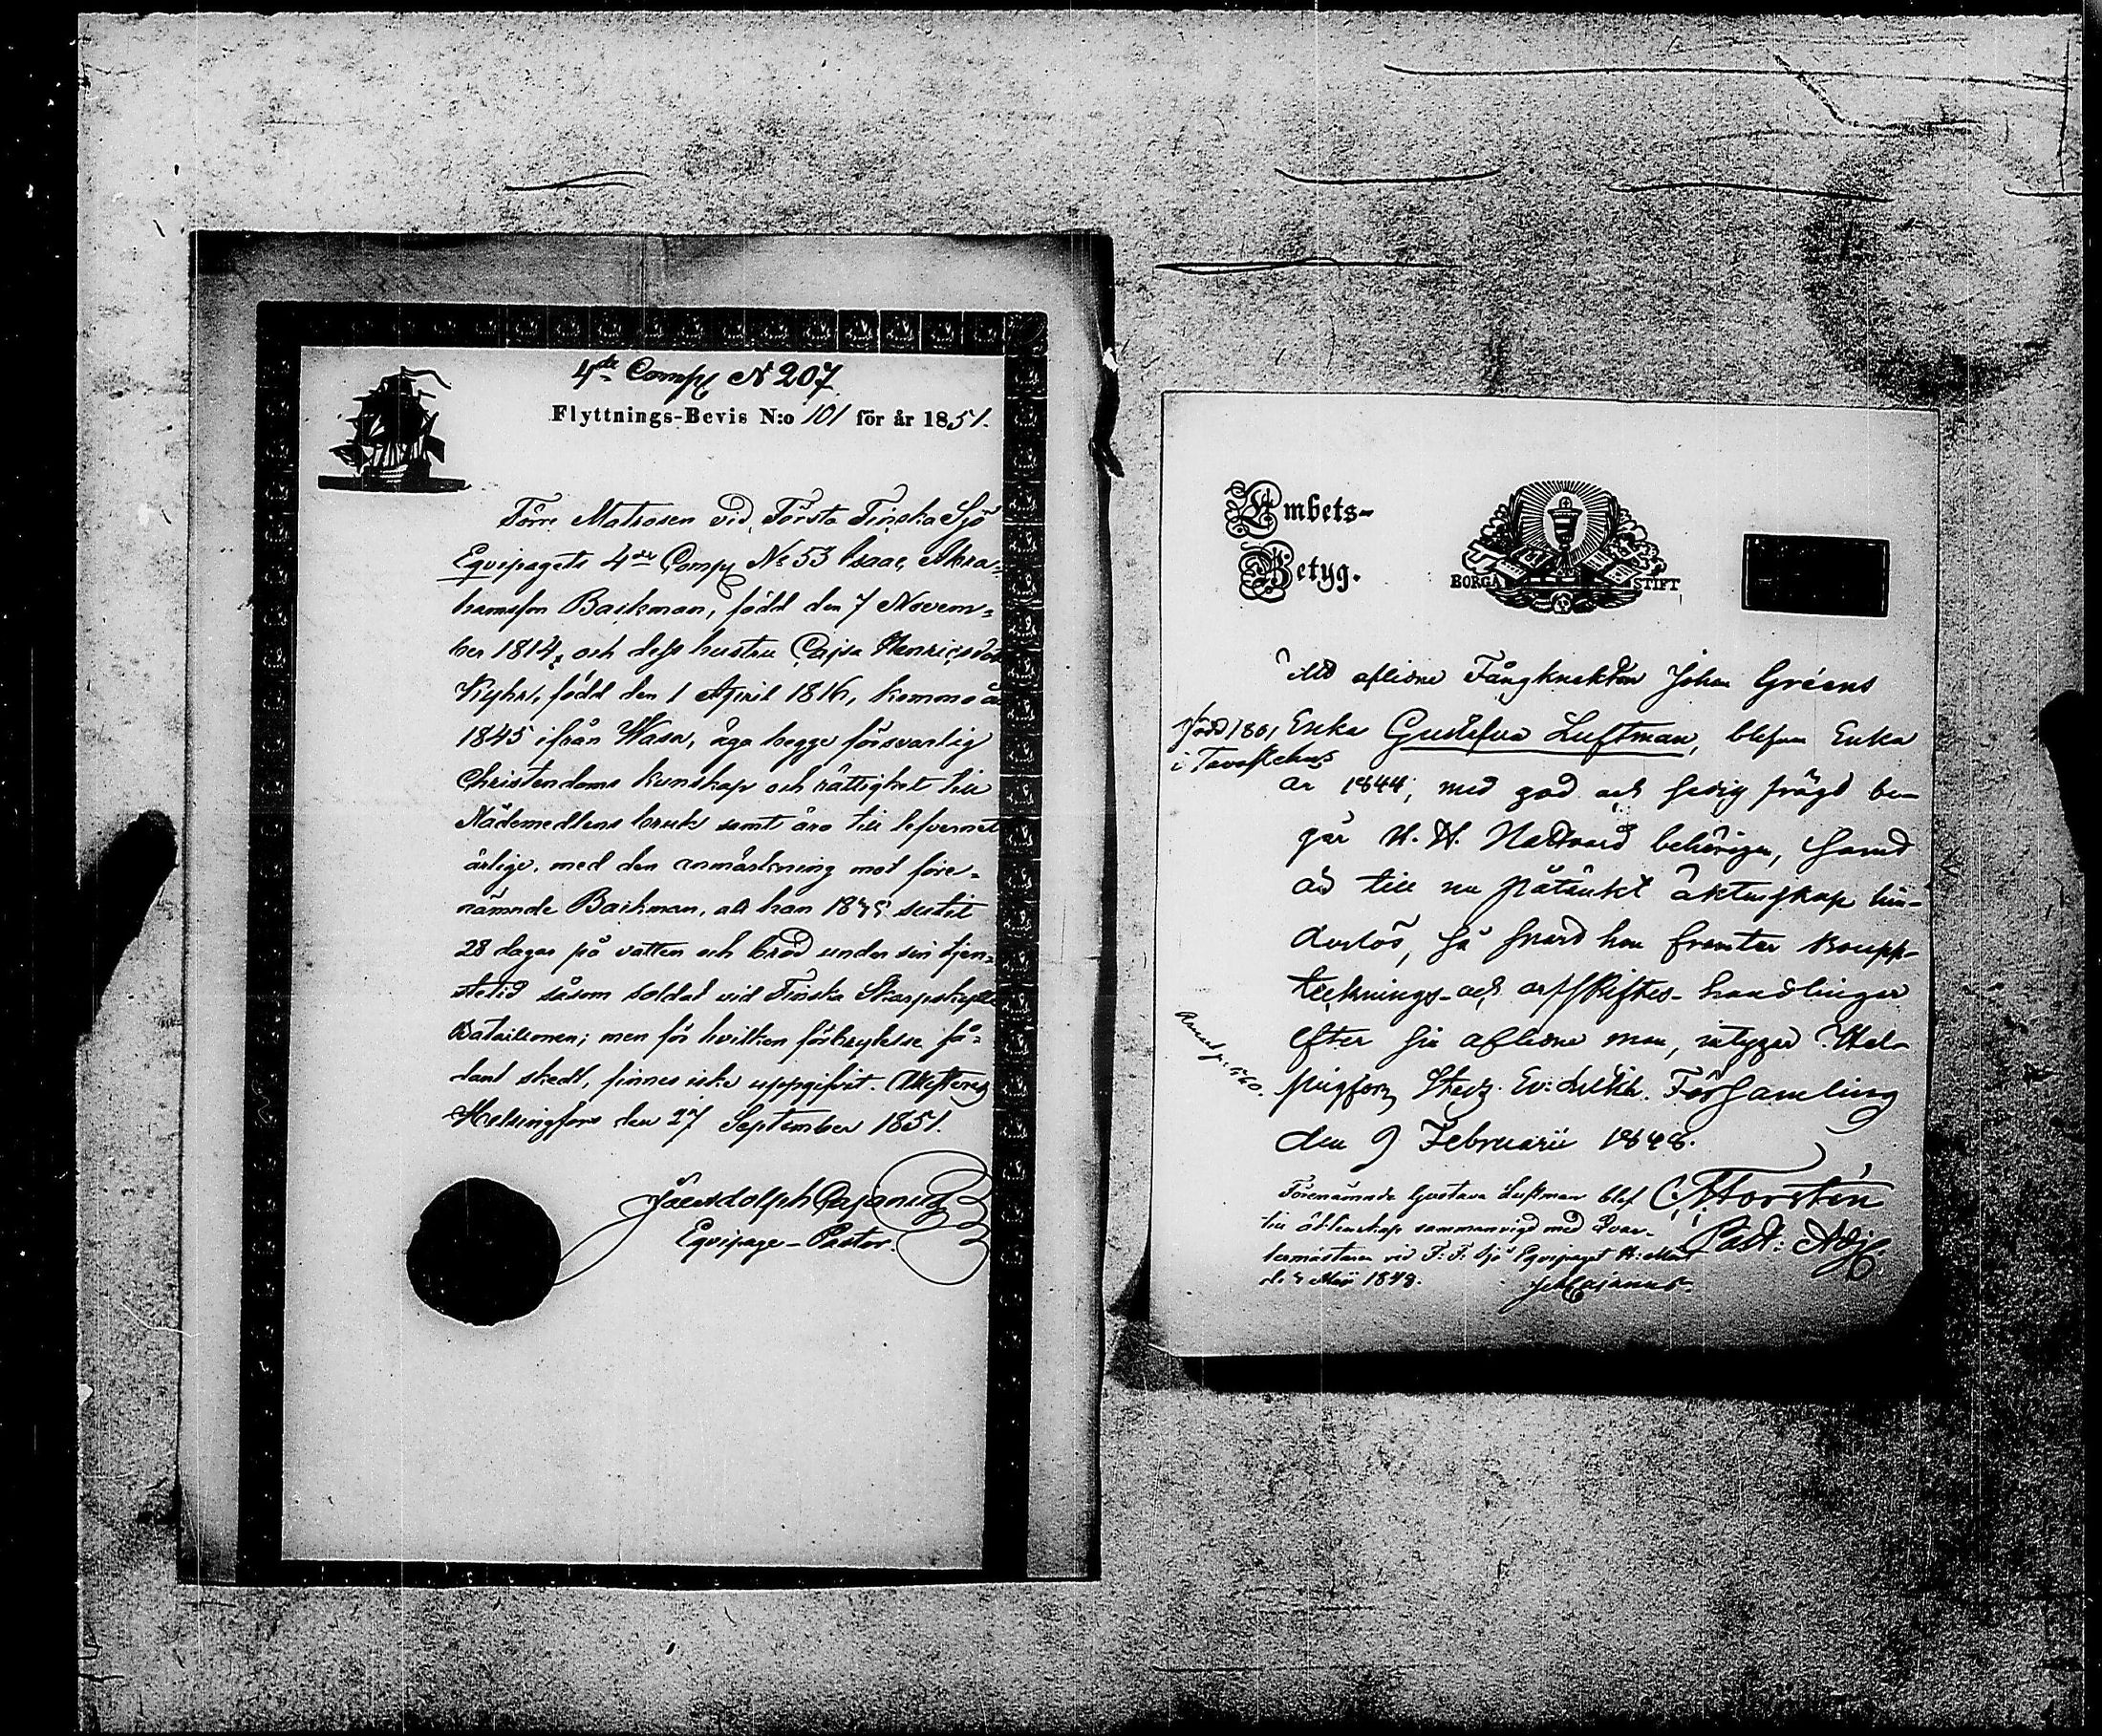 4de Comp N 207
Flyttnings-Bevis N:o 101 för år 1851.
Förre Matrosen vid Första Finska Sjö
Equipagets 4de Comp No 53 Isaac Abra-
hamsson Backman, född den 7 Novem-
ber 1814, och dess hustru Cajsa Henricsdotter
född den 1 April 1816, komne år
1845 ifrån Wasa, äga begge försvarlig
Christendoms kunskap och rättighet till
Nådemedlens bruk samt äro till lefvernet
ärlige, med den anmärkning mot före-
nämnde Backman, att han suttit
28 dagar på vatten och bröd under sin tjen-
stetid såsom soldat vid Finska Skarpskytte
Bataillonen; men för hvilken förbrytelse så-
dant skedt, finnes icke uppgifvit. Attesteras
Helsingfors den 27 September 1851.
Equipage-Pastor.
Embets-
Betyg.
BORGÅ STIFT
Att aflidne Fångknekten Johan Gréens
född 180
i Tavastehus
Enka Gustafva Luftman, blefven Enka
år 1844, med god och sedig frägd be-
går H. H. Nattvard behörigen, samt
är till nu påtänkt äktenskap hin-
derlös, så snart hon framter Boupp-
tecknings- och arfskiftes-handlingar
efter sin aflidne man, intygar Hel-
singfors Stads Ev: Luth. Församling
den 9 Februarii 1848.
Förenämnda Gustava Luftman blef
till äktenskap sammanvigd med Qvar-
termästaren vid F. F. Sjö Equipaget
Past: Adj.